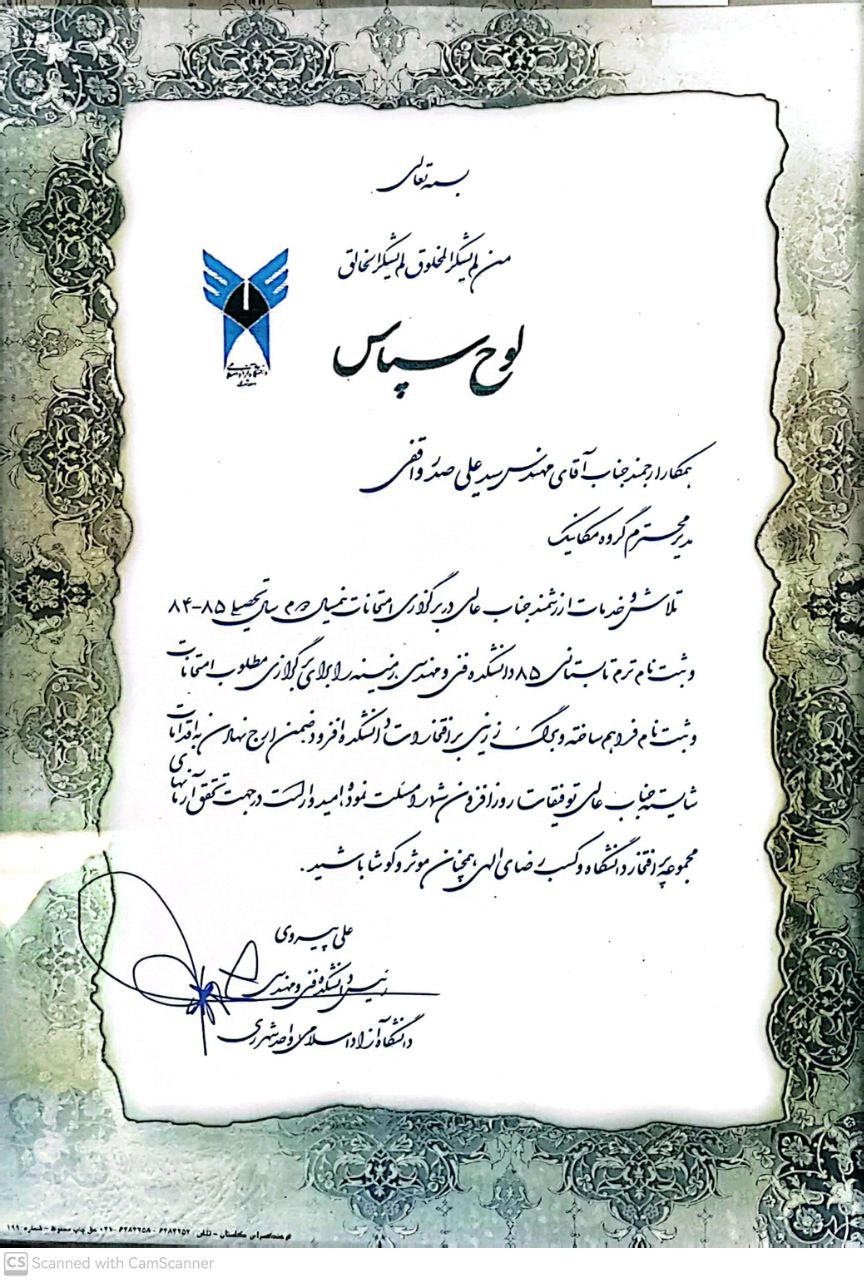 بسمه تعالی
من لم یشکر المخلوق لم یشکر الخالق
لوح سپاس
دانشگاه آزاد اسلامی
همکار ارجمند جناب آقای مهندس سید علی صدر واقفی
مدیر محترم گروه مکانیک
تلاش و خدمات ارزشمند جناب عالی در برگزاری امتحانات نیمسال دوم سال تحصیلی ۸۵-۸۴
و ثبت نام ترم تابستانی ۸۵ دانشکده فنی و مهندسی زمینه را برای برگزاری مطلوب امتحانات
و ثبت نام فراهم ساخته و برگ زرینی بر افتخارات دانشکده افزود ضمن ارج نهادن به اقدامات
شایسته جناب عالی توفیقات روز افزون شما را مسئلت نموده امیدوار است در جهت تحقق آرمانهای
مجموعه پر افتخار دانشگاه و کسب رضای الهی همچنان موثر و کوشا باشید .
علی پیروی
رئیس دانشکده فنی و مهندسی
دانشگاه آزاد اسلامی واحد شهر ری
CS Scanned with CamScanner